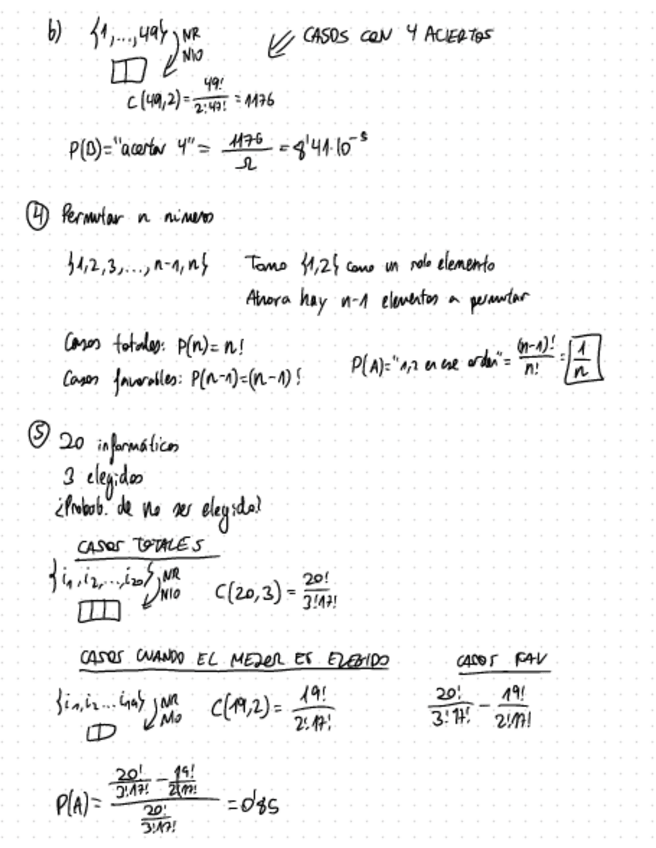 b) {1,...,49} NR
NIO
↙ CASOS CON 4 ACIERTOS
C(49,2) = 49!/2!47! = 1176
P(B)="acertar 4" = 1176/Ω = 8'41·10^-5
④ Permutar n números
{1,2,3,...,n-1,n} Tomo {1,2} como un solo elemento
Ahora hay n-1 elementos a permutar
Casos totales: P(n)=n!
Casos favorables: P(n-1)=(n-1)!
P(A)="1,2 en ese orden" = (n-1)!/n! = 1/n
⑤ 20 informáticos
3 elegidos
¿Probab. de no ser elegido?
CASOS TOTALES
{i1,i2,...,i20} NR
NIO
C(20,3) = 20!/3!17!
CASOS CUANDO EL MEJOR ES ELEGIDO
{i1,i2...i19} NR
NIO
C(19,2) = 19!/2!17!
CASOS FAV
20!/3!17! - 19!/2!17!
P(A) = (20!/3!17! - 19!/2!17!)/(20!/3!17!) = 0'85